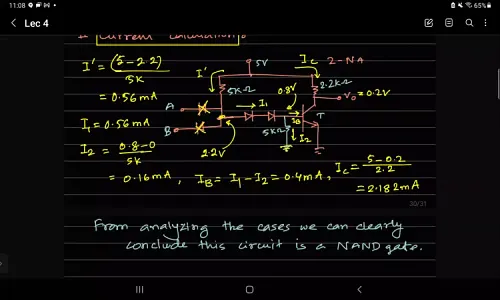 11:08
65%
Lec 4
Current Calculation:
I' = (5-2.2)/5K
= 0.56mA
I1 = 0.56mA
I2 = 0.8-0/5K
= 0.16mA, IB = I1-I2 = 0.4mA, IC = 5-0.2/2.2
= 2.182mA
5V
IC
2-NA
I'
5KΩ
0.8V
2.2KΩ
Vo = 0.2V
A
I1
IB
T
B
5KΩ
I2
2.2V
30/31
From analyzing the cases we can clearly
conclude this circuit is a NAND gate.